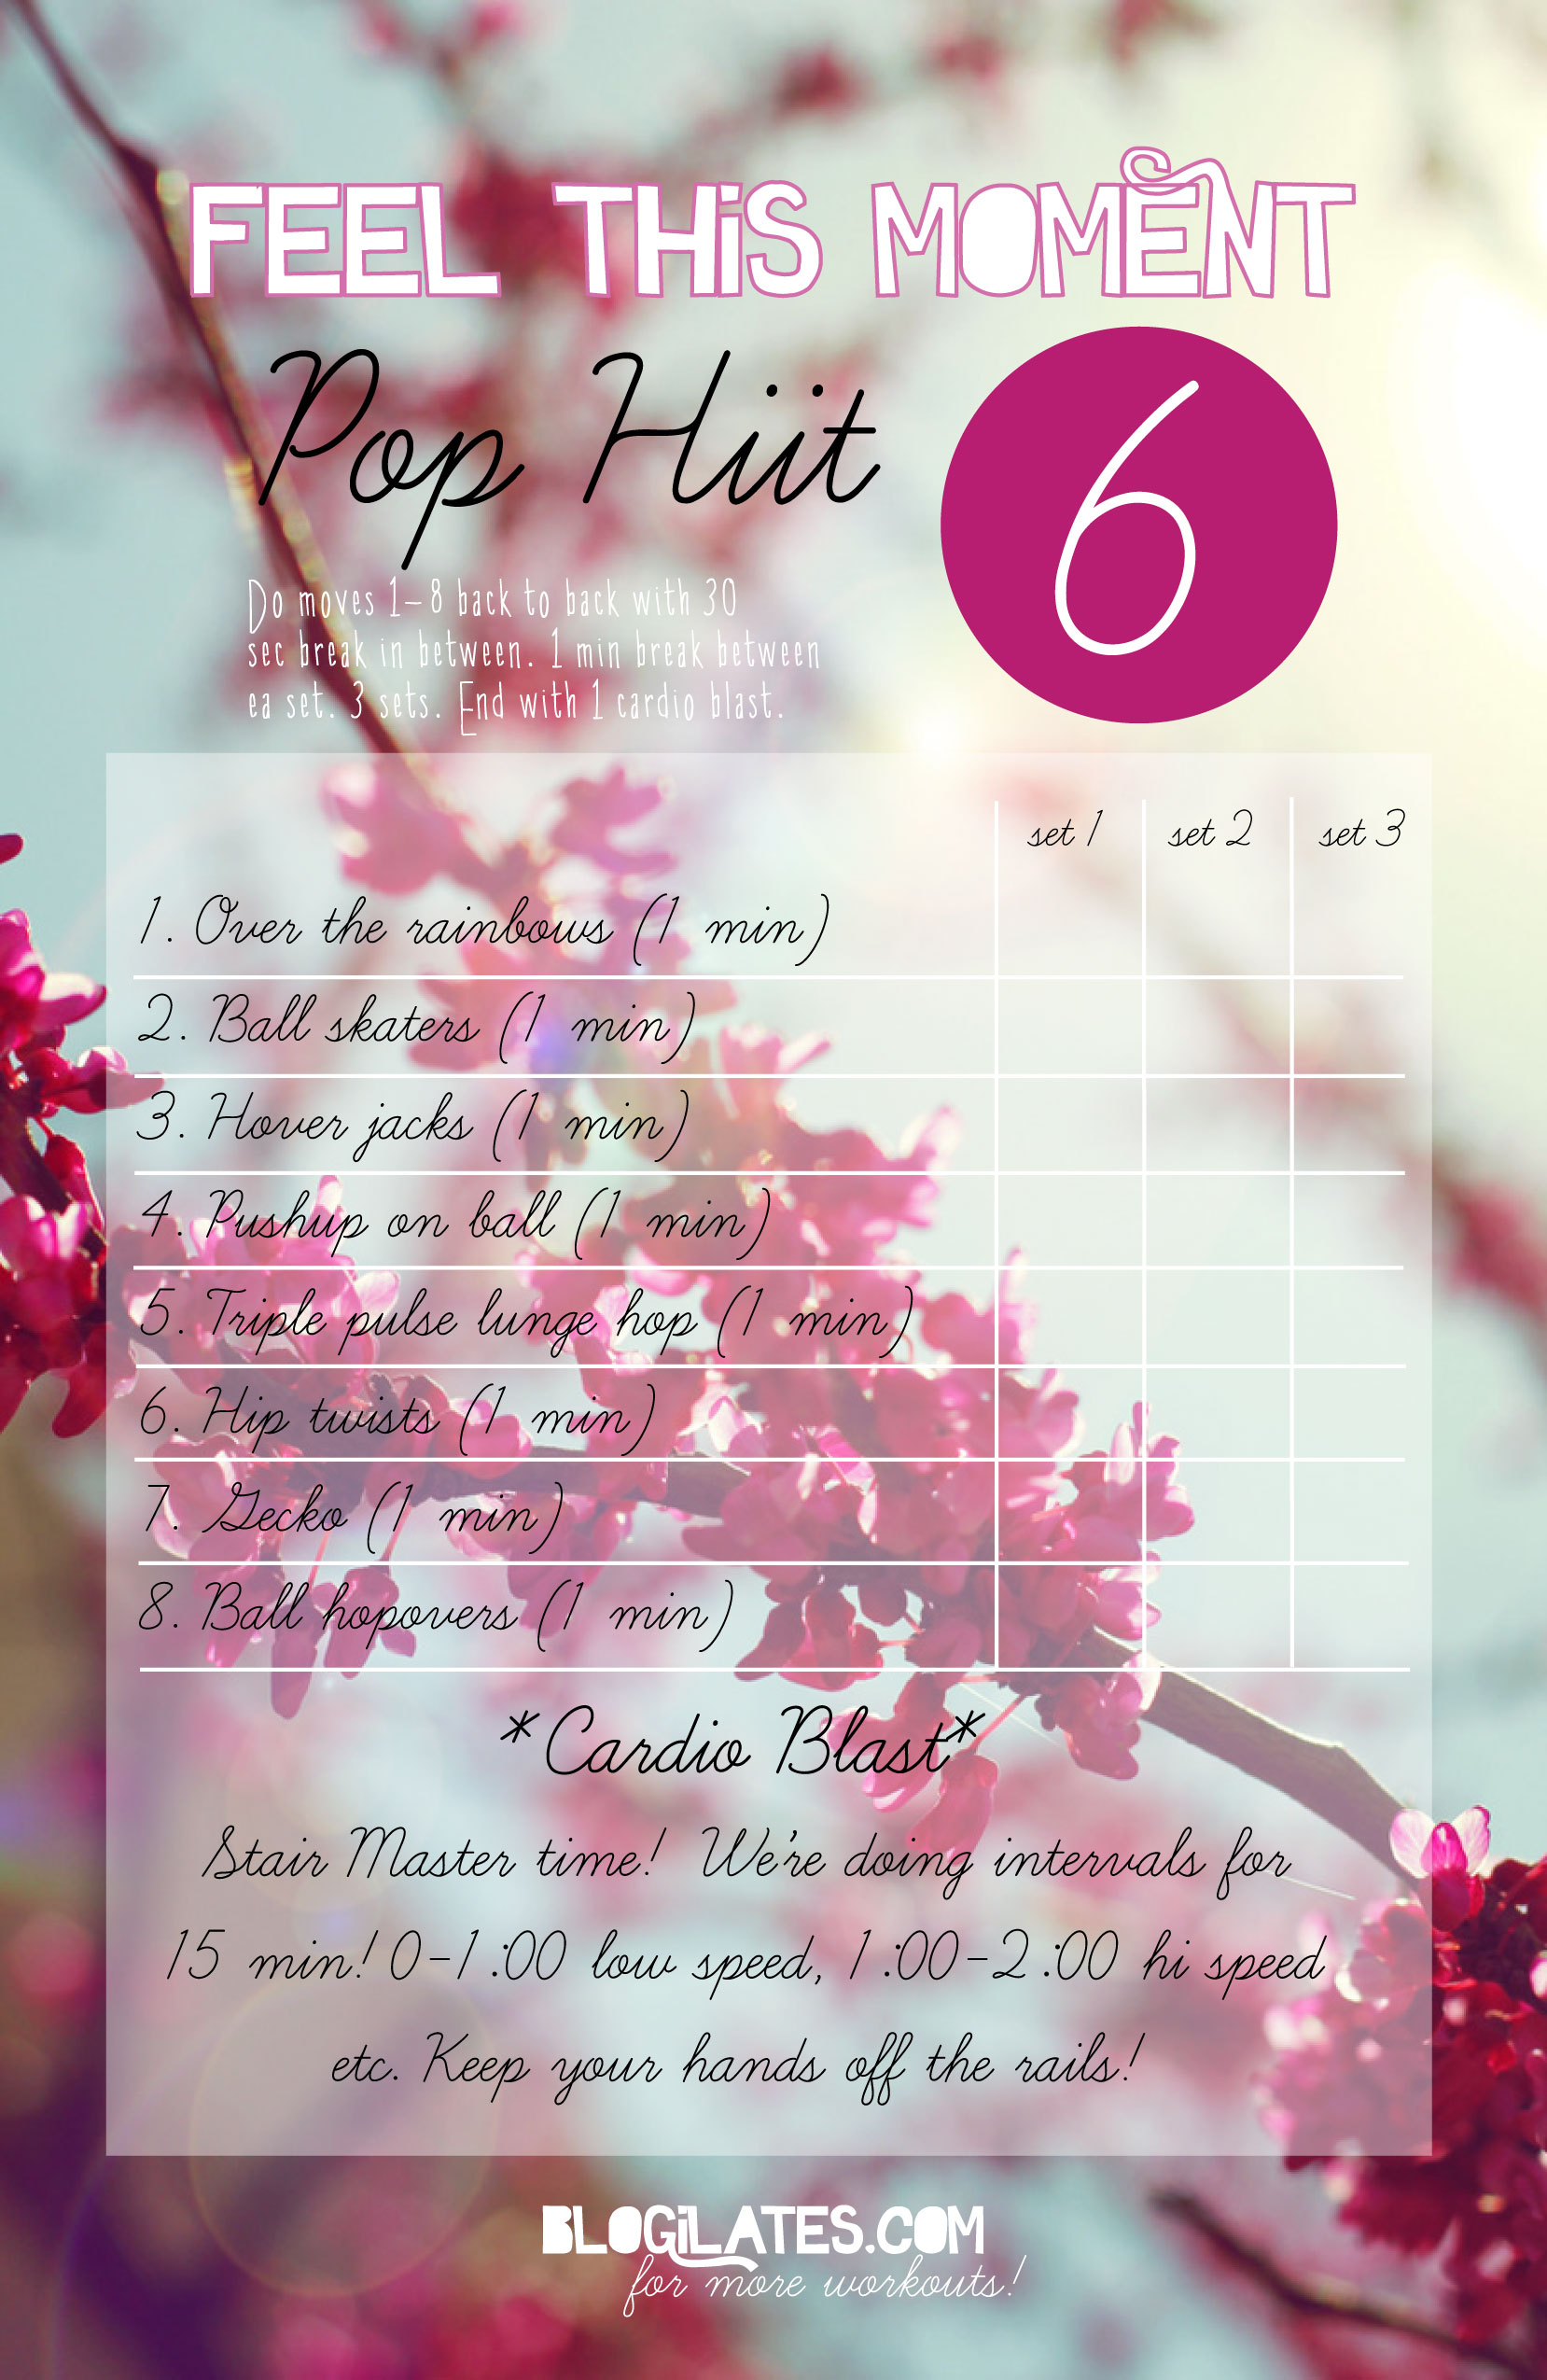 FEEL THiS MOMENT
Pop Hiit
6
Do moves 1-8 back to back with 30
sec break in between. 1 min break between
ea set. 3 sets. End with 1 cardio blast.
set 1 set 2 set 3
1. Over the rainbows (1 min)
2. Ball skaters (1 min)
3. Hover jacks (1 min)
4. Pushup on ball (1 min)
5. Triple pulse lunge hop (1 min)
6. Hip twists (1 min)
7. Gecko (1 min)
8. Ball hopovers (1 min)
*Cardio Blast*
Stair Master time! We're doing intervals for
15 min! 0-1:00 low speed, 1:00-2:00 hi speed
etc. Keep your hands off the rails!
BLOGiLATES.COM
for more workouts!